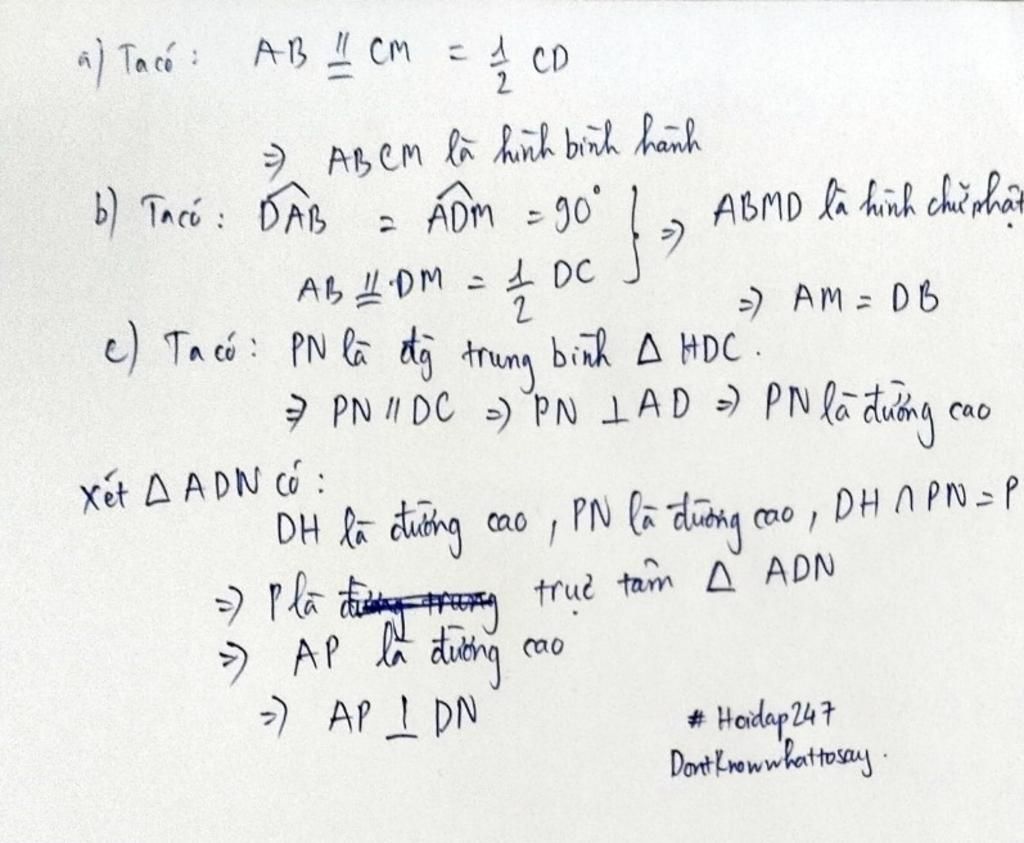 a) Ta có : AB ⫽= CM = 1/2 CD
⇒ ABCM là hình bình hành
b) Ta có : DAB^ = ADM^ = 90° } ⇒ ABMD là hình chữ nhật
AB ⫽= DM = 1/2 DC
⇒ AM = DB
c) Ta có : PN là đg trung bình Δ HDC.
⇒ PN // DC ⇒ PN ⊥ AD ⇒ PN là đường cao
Xét Δ ADN có :
DH là đường cao , PN là đường cao , DH ∩ PN = P
⇒ P là trực tâm Δ ADN
⇒ AP là đường cao
⇒ AP ⊥ DN
# Hoidap247
DontKnowwhattosay.